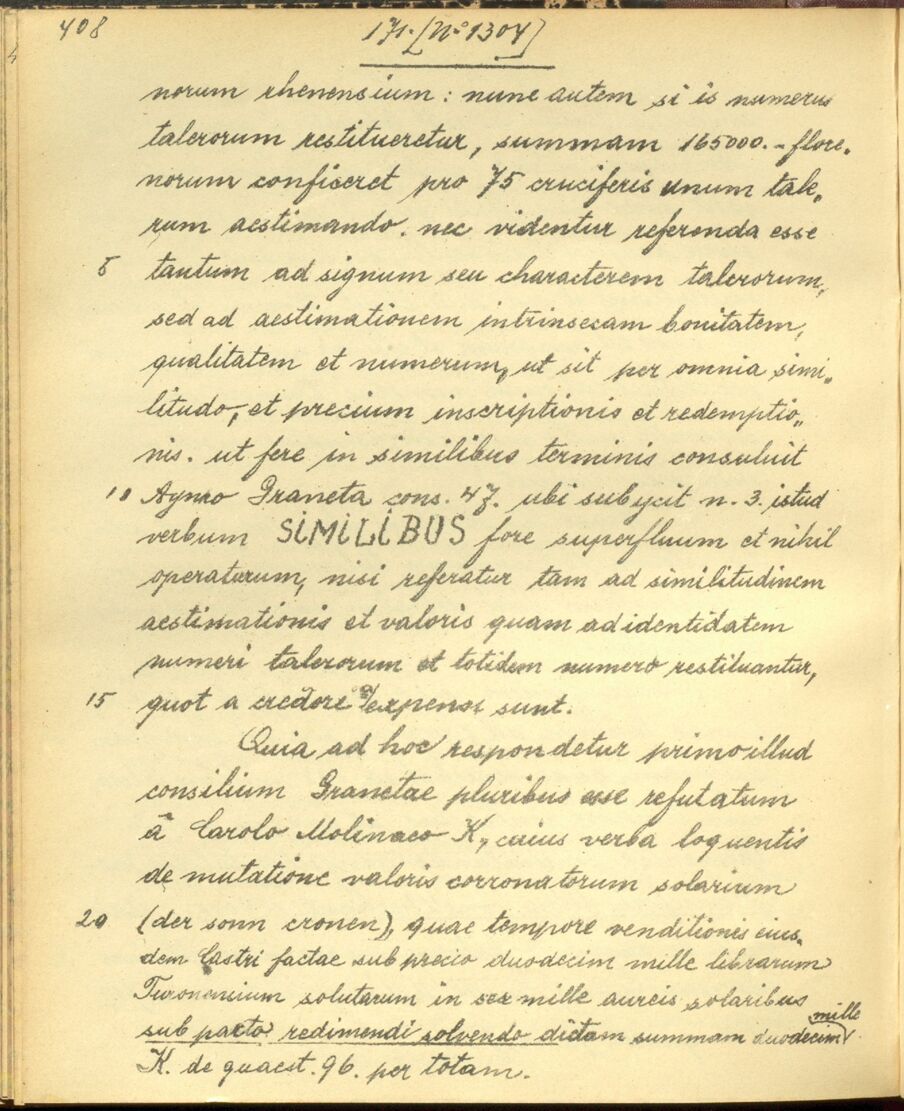 408
171. [No 1304]
norum rhenensium : nunc autem si is numerus
talerorum restitueretur, summam 165000.- flore„
norum conficeret pro 75 cruciferis unum tale„
rum aestimando. nec videntur referenda esse
5 tantum ad signum seu characterem talerorum,
sed ad aestimationem intrinsecam bonitatem,
qualitatem et numerum, ut sit per omnia simi„
litudo, et precium inscriptionis et redemptio„
nis. ut fere in similibus terminis consuluit
10 Aymo Graneta cons. 47. ubi subycit n. 3. istud
verbum SIMILIBUS fore superfluum et nihil
operaturum, nisi referatur tam ad similitudinem
aestimationis et valoris quam ad identidatem
numeri talerorum et totidem numero restituantur,
15 quot a credore expensi sunt.
Quia ad hoc respondetur primo illud
consilium Granetae pluribus esse refutatum
â Carolo Molinaeo K, cuius verba loquentis
de mutatione valoris corronatorum solarium
20 (der sonn cronen), quae tempore venditionis eius„
dem Castri factae sub precio duodecim mille librarum
Turonensium solutarum in sex mille aureis solaribus
sub pacto redimendi solvendo dictam summam duodecim mille
K. de quaest. 96. per totam.